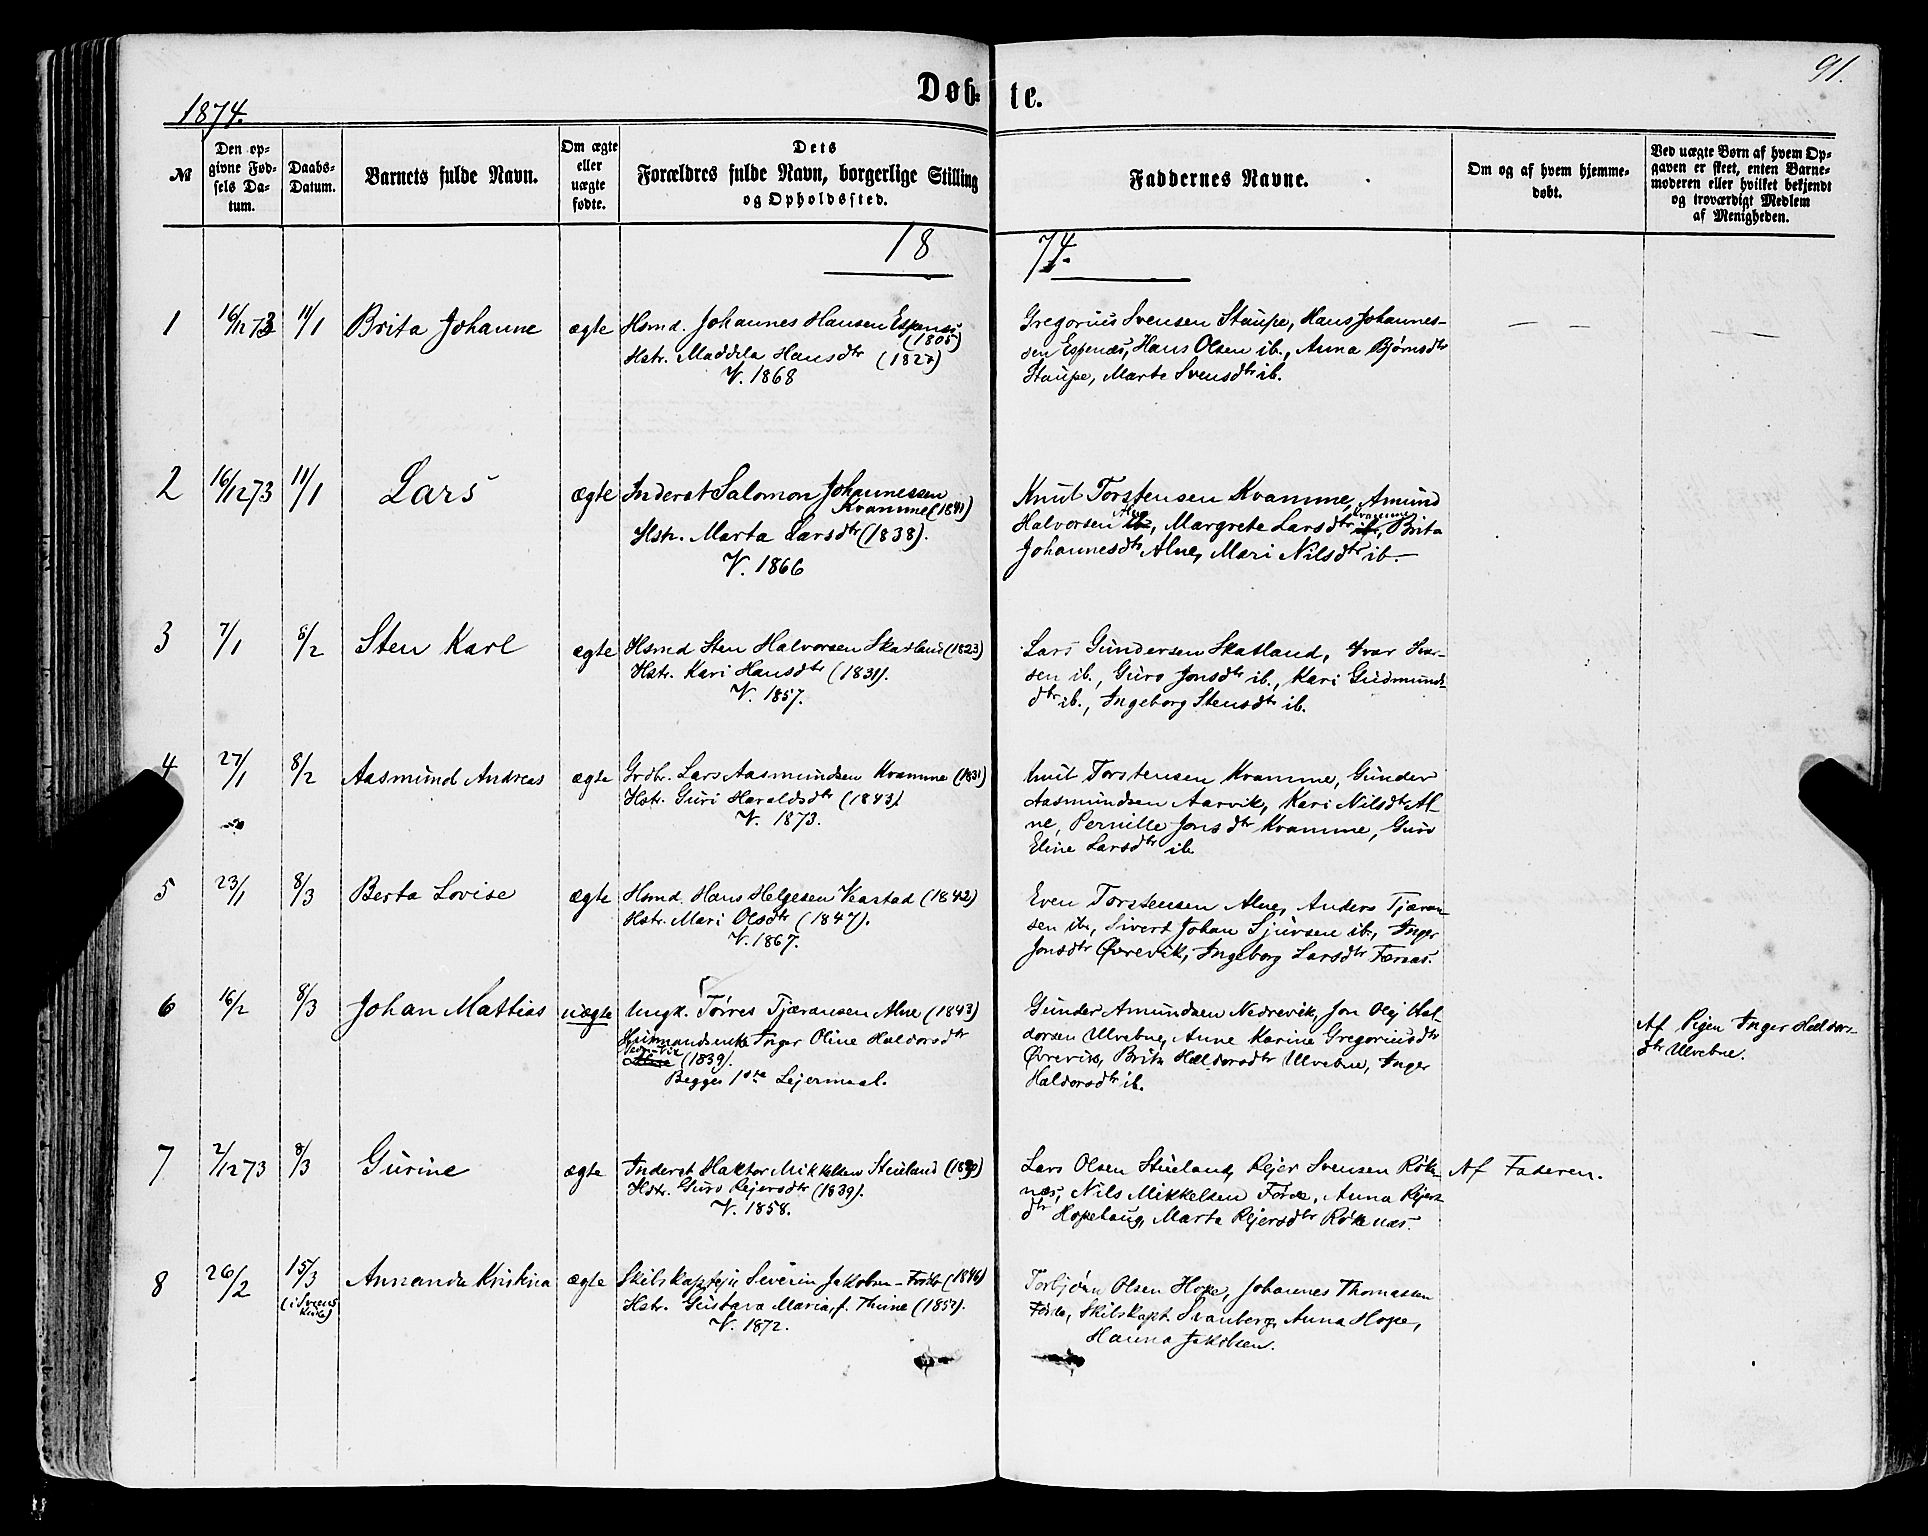 91.
1874.
Døb- te.
№
Den opgivne Fødsels Datum.
Daabs-Datum.
Barnets fulde Navn.
Om ægte eller uægte fødte.
Dets
Forældres fulde Navn, borgerlige Stilling
og Opholdssted.
Faddernes Navne.
Om og af hvem hjemmedøbt.
Ved uægte Børn af hvem Opgaven er skeet, enten Barnemoderen eller hvilket bekjendt og troværdigt Medlem af Menigheden.
18 74.
1 16/12 73 11/1 Brita Johanne ægte Hsmd. Johannes Hansen Espenæs
(1805)
Hstr. Maddela Hansdtr (1827)
V. 1868
Gregorius Svensen Staupe, Hans Johannes-
sen Espenæs, Hans Olsen ib., Anna Bjørnsdtr
Staupe, Marte Svensdtr ib.
— — — —
2 16/12 73 11/1 Lars ægte Inderst Salomon Johannessen
Kvamme (1841)
Hstr. Marta Larsdtr (1838).
V. 1866
Knut Torstensen Kvamme, Amund
Halvorsen Alne ib., Margrete Larsdtr Kvamme ib., Brita
Johannesdtr Alne, Mari Nilsdtr ib.
3 7/1 8/2 Sten Karl ægte Hsmd Sten Halvorsen Skatland (1823)
Hstr. Kari Hansdtr (1831).
V. 1857.
Lars Gundersen Skatland, Ivar Ivar-
sen ib., Guro Jonsdtr ib., Kari Gudmunds-
dtr ib., Ingeborg Stensdtr ib.
4 27/1 8/2 Aasmund Andreas ægte Grdbr. Lars Aasmundsen Kvamme (1831)
Hstr. Guri Haraldsdtr (1843)
V. 1873.
Knut Torstensen Kvamme, Gunder
Aasmundsen Aarvik, Kari Nilsdtr Al-
ne, Pernille Jonsdtr Kvamme, Guro
Eline Larsdtr ib.
5 23/1 8/3 Berta Lovise ægte Hsmd. Hans Helgesen Veastad (1842)
Hstr. Mari Olsdtr (1847).
V. 1867.
Even Torstensen Alne, Anders Tjæran-
sen ib., Sivert Johan Sjursen ib., Inger
Jonsdtr Øvrevik, Ingeborg Larsdtr Tærnæs.
6 16/2 8/3 Johan Mattias uægte Ungk. Tørres Tjæransen Alne (1843)
Husmandsenke Inger Oline Haldorsdtr
(1839).
Begges 1ste Lejermaal.
Gunder Amundsen Nedrevik, Jon Olej Hal-
dorsen Ulvebne, Anne Karine Gregoriusdtr
Øvrevik, Brita Haldorsdtr Ulvebne, Inger
Haldorsdtr ib.
Af Pigen Inger Haldors-
dtr Ulvebne.
7 2/12 73 8/3 Gurine ægte Inderst Haktor Mikkelsen Stueland
Hstr. Guro Rejersdtr (1839).
V. 1858.
Lars Olsen Stueland, Rejer Svensen Røk-
næs, Nils Mikkelsen Førde, Anna Rejers-
dtr Hopehaug, Marta Rejersdtr Røknæs.
Af Faderen.
8 26/2 15/3 Annanda Kristina ægte Skibskaptejn Severin Jakobsen Førde (1846)
Hstr. Gustava Maria, f. Thime
V. 1872.
Torbjørn Olsen Hope, Johannes Thomassen
Førde, Skibskapt. Svanberg, Anna Hope,
Hanna Jakobsen.